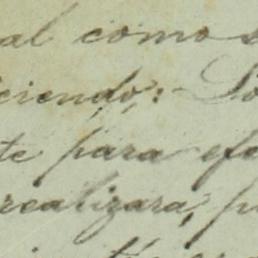 al como s
ciendo: So
te para efe
realizara, p